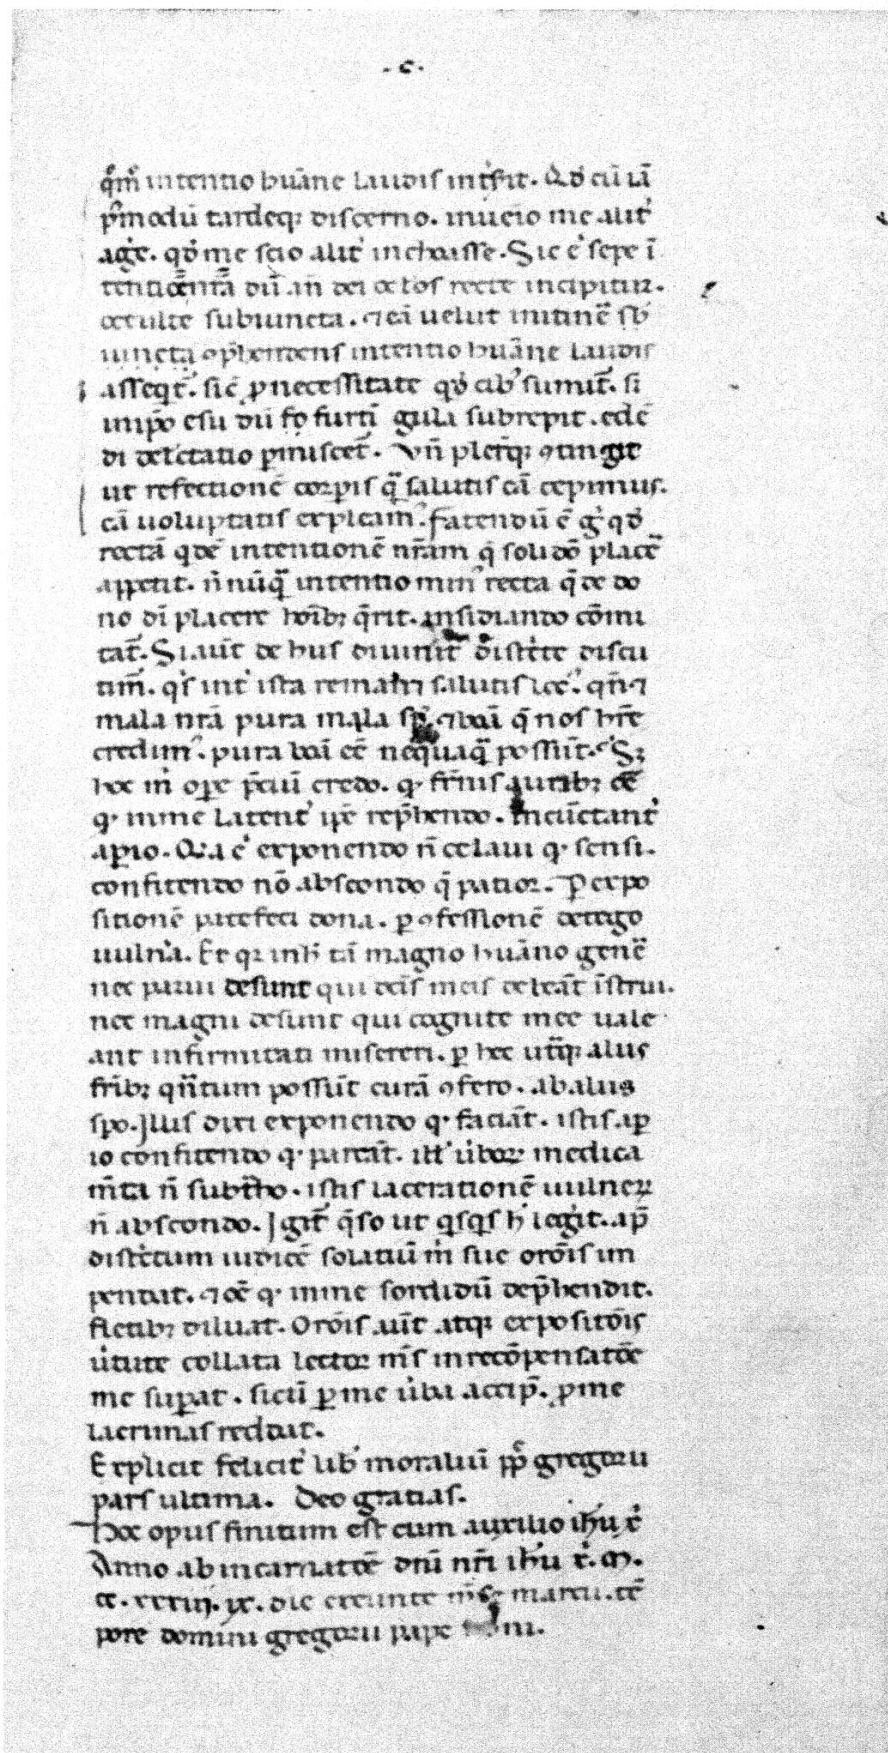 .c.
q̊m̊ intentio huāne laudis int͛sit. Qđ cū iā
p͛modū tardeq; discerno. inuēio me alit͛
ag͛e. qđ me scio alit͛ inchoasse. Sic ē sepe ī
dū añ dei oc̄los recte incipitur.
occulte subiuncta. ⁊ eā uelut initinē̄ sb̄
iuncta ꝯp̄hendens intentio huāne laudis
asseqt̄. sic̄ ꝓ necessitate qđ cib᷒ sumit̄. si
in ip̄o esu dū furtī gula subrepit. edē
di delectatio p̱miscet̄. Vn̄ plerūq; ꝯtingit
ut refectionē corp̱is qā salutis cā cepimus.
cā uoluptatis expleam᷒. Fatendū ē g͛ qđ
rectā qdē intentionē nr̄am q̄ soli dō placē
appetit. n̄nūqā intentio min᷒ recta q̄ de do
no dī placere hoīb; q̄rit. insidiando cōmi
tat̄. Si aūt de hiis diuinit͛ dist͛cte discu
tim̄. qs int͛ ista remanet salutis loc᷒. qn̄ ⁊
mala nr̄a pura mala sr̄. ⁊ boā q̄ nos hr̄e
credim᷒. pura boā ēē nequaqā possūt. S;
hoc m͛ oꝑe p̄ciū credo. q̇ fr̄nis aurib; ōē
q̇ in me latent͛ ip̄e rep̄hendo. incūctant͛
aꝑio. Q̇ia ē exponendo n̄ celaui q̇ sensi.
confitendo nō abscondo q̄ patior. Ꝑ expo
sitionē patefeci dona. ꝑ ꝯfessionē detego
uuln͛a. Et q̇ inh̄ tā magno huāno genē
nec parui desunt qui dc̄is meis debeāt īstrui.
nec magni desunt qui cognite mee uale
ant infirmitati misereri. ꝑ hec utr̄q; aliis
fr̄ib; qn̄tum possūt curā ꝯfero. ab aliis
sp̱o. Illis dixi exponendo q̇ faciāt. istis aꝑ
io confitendo q̇ parcāt. ill᷒ u͛boꝝ medica
m̄ta n̄ subt̄ho. istis lacerationē uulneꝝ
n̄ abscondo. Igit̄ q̄so ut qsqs h̄ leg͛it. ap̄
dist͛ctum iudicē solatiū m͛ sue orōis im
pendat. ⁊ ōē q̇ in me sordidū dep̄hendit.
fletib; diluat. Orōis aūt atq; expositōis
u͛tute collata lector m̄s in recōpensatōe
me suꝑat. si cū ꝑ me u͛ba accip̄. ꝓ me
lacrimas reddat.
Explicit felicit͛ lib̄ moraliū pp̄ gregorii
pars ultima. Deo gratias.
Hoc opus finitum est cum auxilio ih̄u x͛
Anno ab incarnatōe dn̄i nr̄i ih̄u x͛. m̄.
cc. xxxiii. ix. die exeunte mēse marcii. tē
pore domini gregorii pape noni.